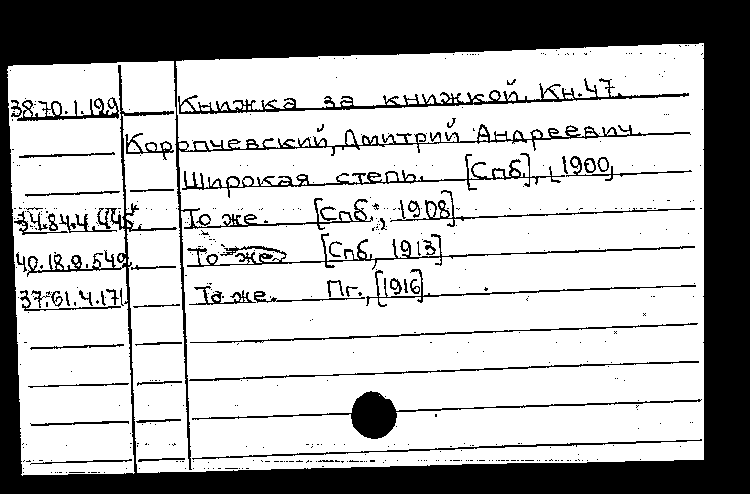 38.70.1.199 Книжка за книжкой. Кн.47.
Коропчевский, Дмитрий Андреевич.
Широкая степь. [Спб], [1900,
34.84.4.445* То же. [Спб., 1908].
40.18.9.549. То же. [Спб, 1913].
37.61.4.171. То же. Пг., [1916].